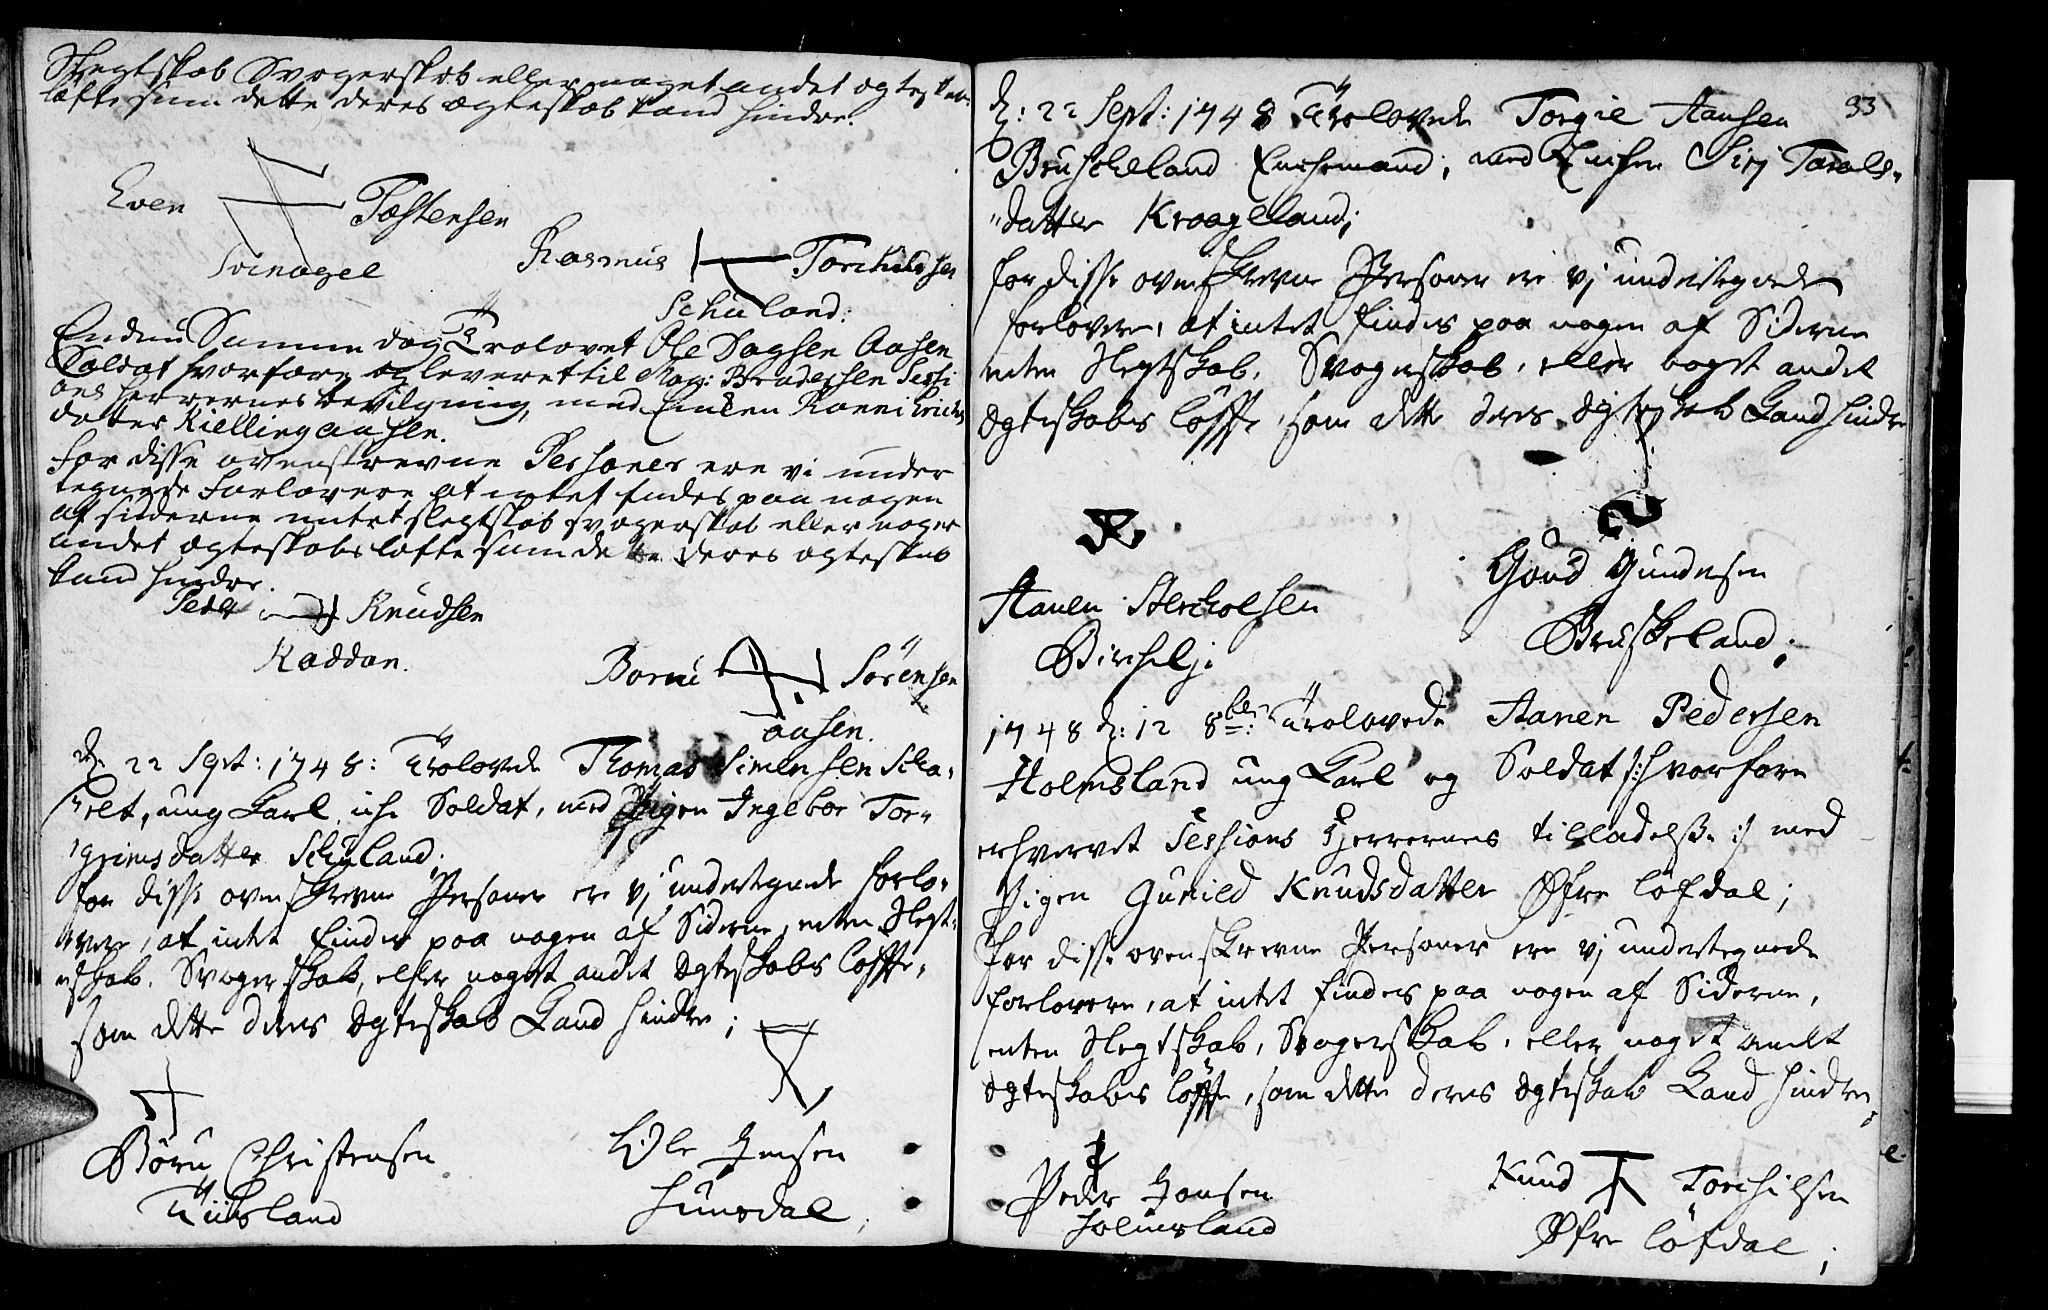 Slegtskab Svogerskab eller noget andet ægteskabs
løfte som dette deres ægteskab kand hindre.
Even Tostensen
Svinagel
Rasmus Torkildsen
Schuland:
Endnu Samme dag Trolovet Ole Dagsen Aasen
Soldat hvorfore og leveret til Mag: Brodersen Sessi
ons herrernes bevilgning, med Enken Ronni Erichs
datter Kiellingaasen.
for disse ovenskrevne Personer ere vi under
tegnede forlovere at intet findes paa nogen
af siderne entet slegtskab svogerskab eller noget
andet ægteskabs løfte som dette deres ægteskab
kand hindre.
Peder Knudsen
Raddan.
Borni Sørensen
aasen.
d. 22 Sept: 1748: Trolovede Thomas Simensen Scha-
felt, ung Karl iche Soldat, med Pigen Ingebor Tor-
grimsdatter Schuland;
for disse ovenskrevne Personer ere vj undertegnede forlo-
vere, at intet findes paa nogen af Siderne, enten Slegt-
skab, Svogerskab, eller noget andet Ægteskabs løffte,
som dette deres Ægteskab Kand hindre;
Børu Christensen
Ole Jensen
Hunsdal;
33
d: 22 Sept: 1748 Trolovede Torgie Aansen
Bruskeland Enchemand, med Enchen Sirj Tarals-
datter Kraageland;
for disse ovenskrevne Personer ere vj undertegnede
forlovere, at intet findes paa nogen af Siderne
enten Slegtskab, Svogerskab, eller noget andet
Ægteskabs løffte, som dette deres Ægteskab Kand hindre
Aanen Aercholsen
Birkelj:
Goud Gundersen
Bruskeland;
1748 d: 12 8br: Trolovede Aanen Pedersen
Holmsland ung Karl og Soldat /: hvorfore
erhvervet Sessions Herrernes tilladelse :/ med
Pigen Gunild Knudsdatter Øfre Løfdal;
for disse ovenskrevne Personer ere vj undertegnede
forlovere, at intet findes paa nogen af Siderne,
enten Slegtskab, Svogerskab, eller noget andet
Ægteskabs løffte, som dette deres Ægteskab Kand hindre;
Peder Jonsen
Holmsland
Knud Torchilsen
Øfre Løfdal;